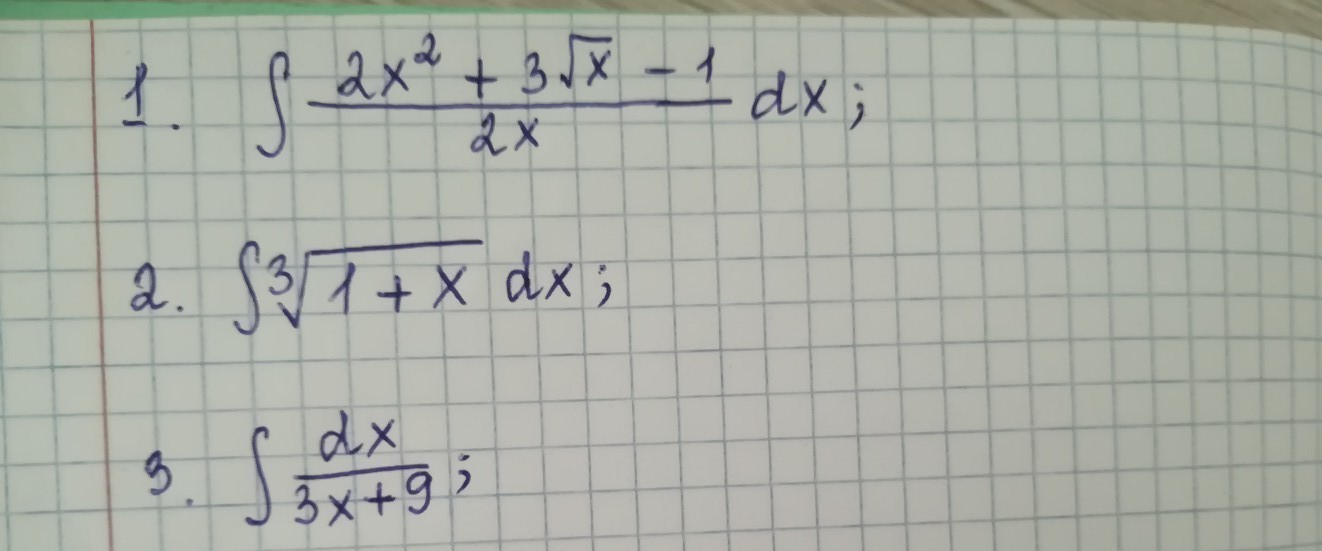 1. ∫ (2x² + 3√x − 1)/(2x) dx;
2. ∫ ∛(1 + x) dx;
3. ∫ dx/(3x+9);